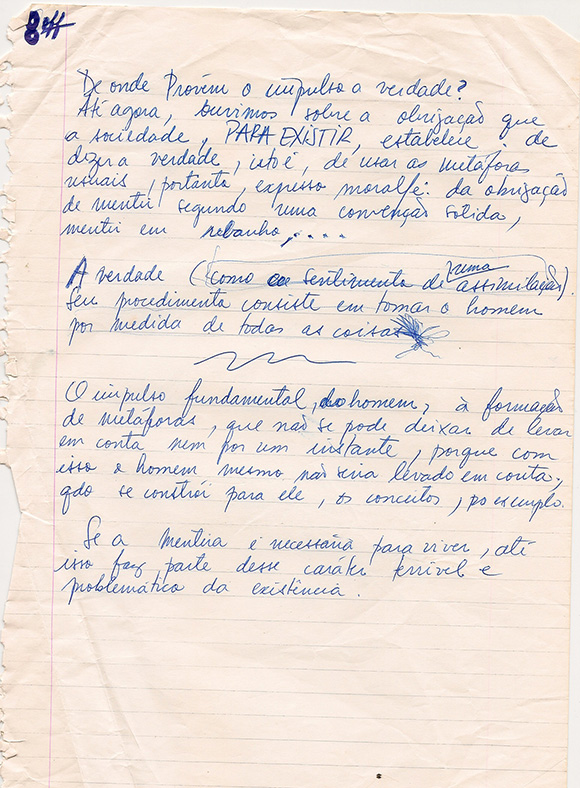 De onde Provém o impulso a verdade?
Até agora, ouvimos sobre a obrigação que
a sociedade, PARA EXISTIR, estabelece: de
dizer a verdade, isto é, de usar as metáforas
usuais, portanto, expresso moral/e: da obrigação
de mentir segundo uma convenção sólida,
mentir em rebanho,....
A verdade (como sentimento de uma assimilação).
Seu procedimento consiste em tomar o homem
por medida de todas as coisas
O impulso fundamental, do homem, à formação
de metáforas, que não se pode deixar de levar
em conta nem por um instante, porque com
isso o homem mesmo não seria levado em conta,
qdo se constrói para ele, os conceitos, po exemplo.
Se a mentira é necessária para viver, até
isso faz parte desse caráter terrível e
problemático da existência.